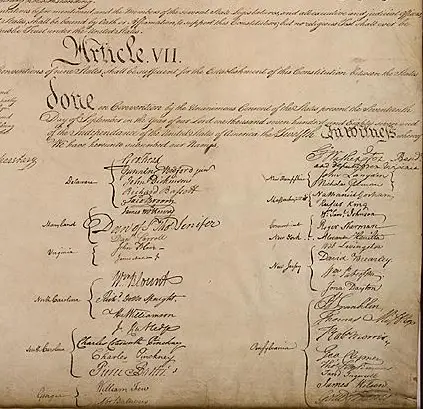 and the Members of the several State Legislatures, and all executive and judicial Officers,
States, shall be bound by Oath or Affirmation, to support this Constitution; but no religious Test shall ever be
under the United States.
Article. VII.
Conventions of nine States, shall be sufficient for the Establishment of this Constitution between the States
done in Convention by the Unanimous Consent of the States present the Seventeenth
Day of September in the Year of our Lord one thousand seven hundred and Eighty seven and
of the Independance of the United States of America the Twelfth In Witness whereof
We have hereunto subscribed our Names,
Delaware
Gunning Bedford jun
John Dickinson
Richard Bassett
Jaco Broom
Maryland
James McHenry
Dan of St Thos Jenifer
Danl Carroll
Virginia
John Blair
North Carolina
Wm Blount
Richd Dobbs Spaight
Hu Williamson
South Carolina
J. Rutledge
Charles Cotesworth Pinckney
Charles Pinckney
Pierce Butler
Georgia
William Few
Abr Baldwin
and deputy from Virginia
New Hampshire
John Langdon
Nicholas Gilman
Massachusetts
Nathaniel Gorham
Rufus King
Connecticut
Wm Saml Johnson
Roger Sherman
New York
Hamilton
New Jersey
Wil Livingston
David Brearley
Wm Paterson
Jona Dayton
Pensylvania
B Franklin
Thomas Mifflin
Robt Morris
Geo Clymer
Thos FitzSimons
Jared Ingersoll
James Wilson
Gouv Morris